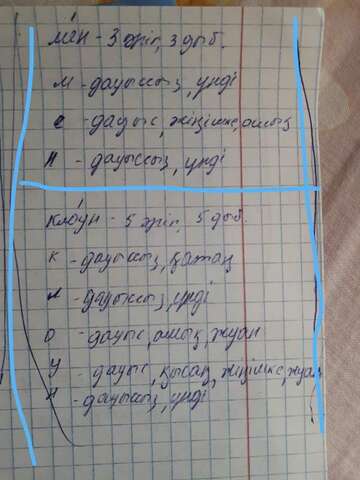 мен - 3 әріп, 3 дыб.
м - дауыссыз, үнді
е - дауыс, жіңішке, ашық
н - дауыссыз, үнді
клоун - 5 әріп, 5 дыб.
к - дауыссыз, қатаң
л - дауыссыз, үнді
о - дауыс, ашық, жуан
у - дауыс, қысаң, жіңішке, жуан
н - дауыссыз, үнді